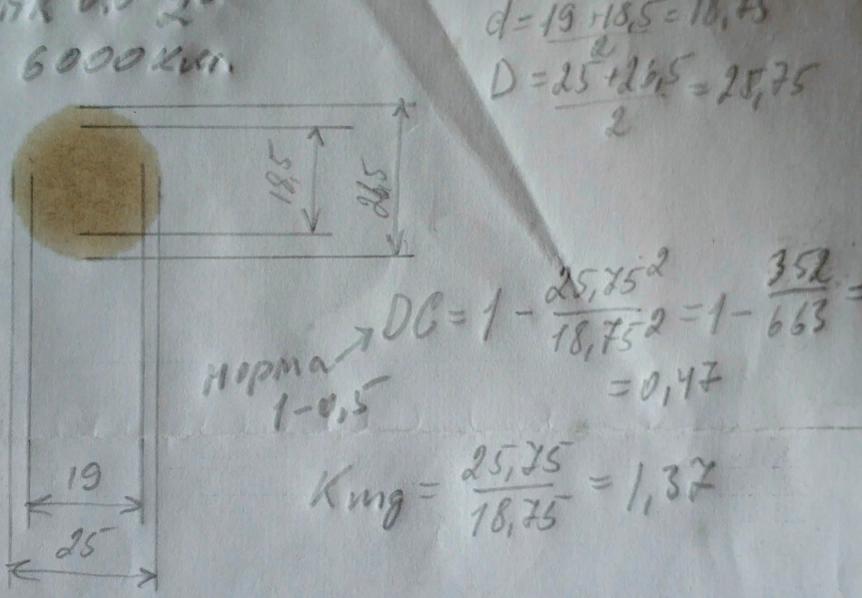 6000 км.
d = 19 + 18,5 / 2 = 18,75
D = 25 + 26,5 / 2 = 25,75
18,5
26,5
DC = 1 - 25,75² / 18,75² = 1 - 352 / 663 =
= 0,47
норма
1-0,5
Kтд = 25,75 / 18,75 = 1,37
19
25